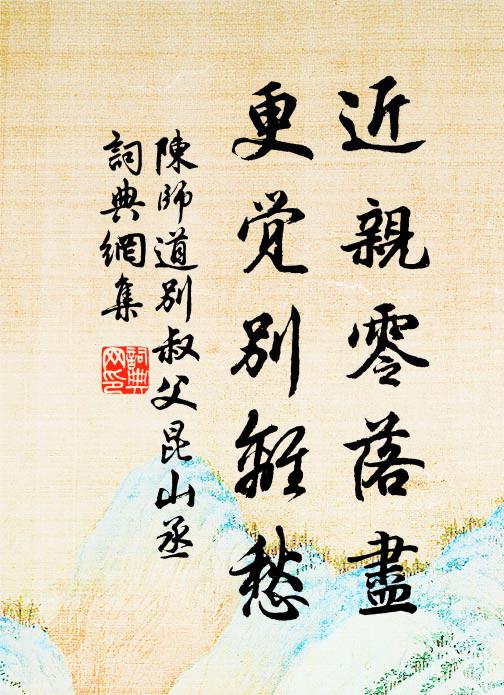 近親零落盡
更觉別離愁
陳師道別叔父昆山丞
詞典網集
詞典
网印